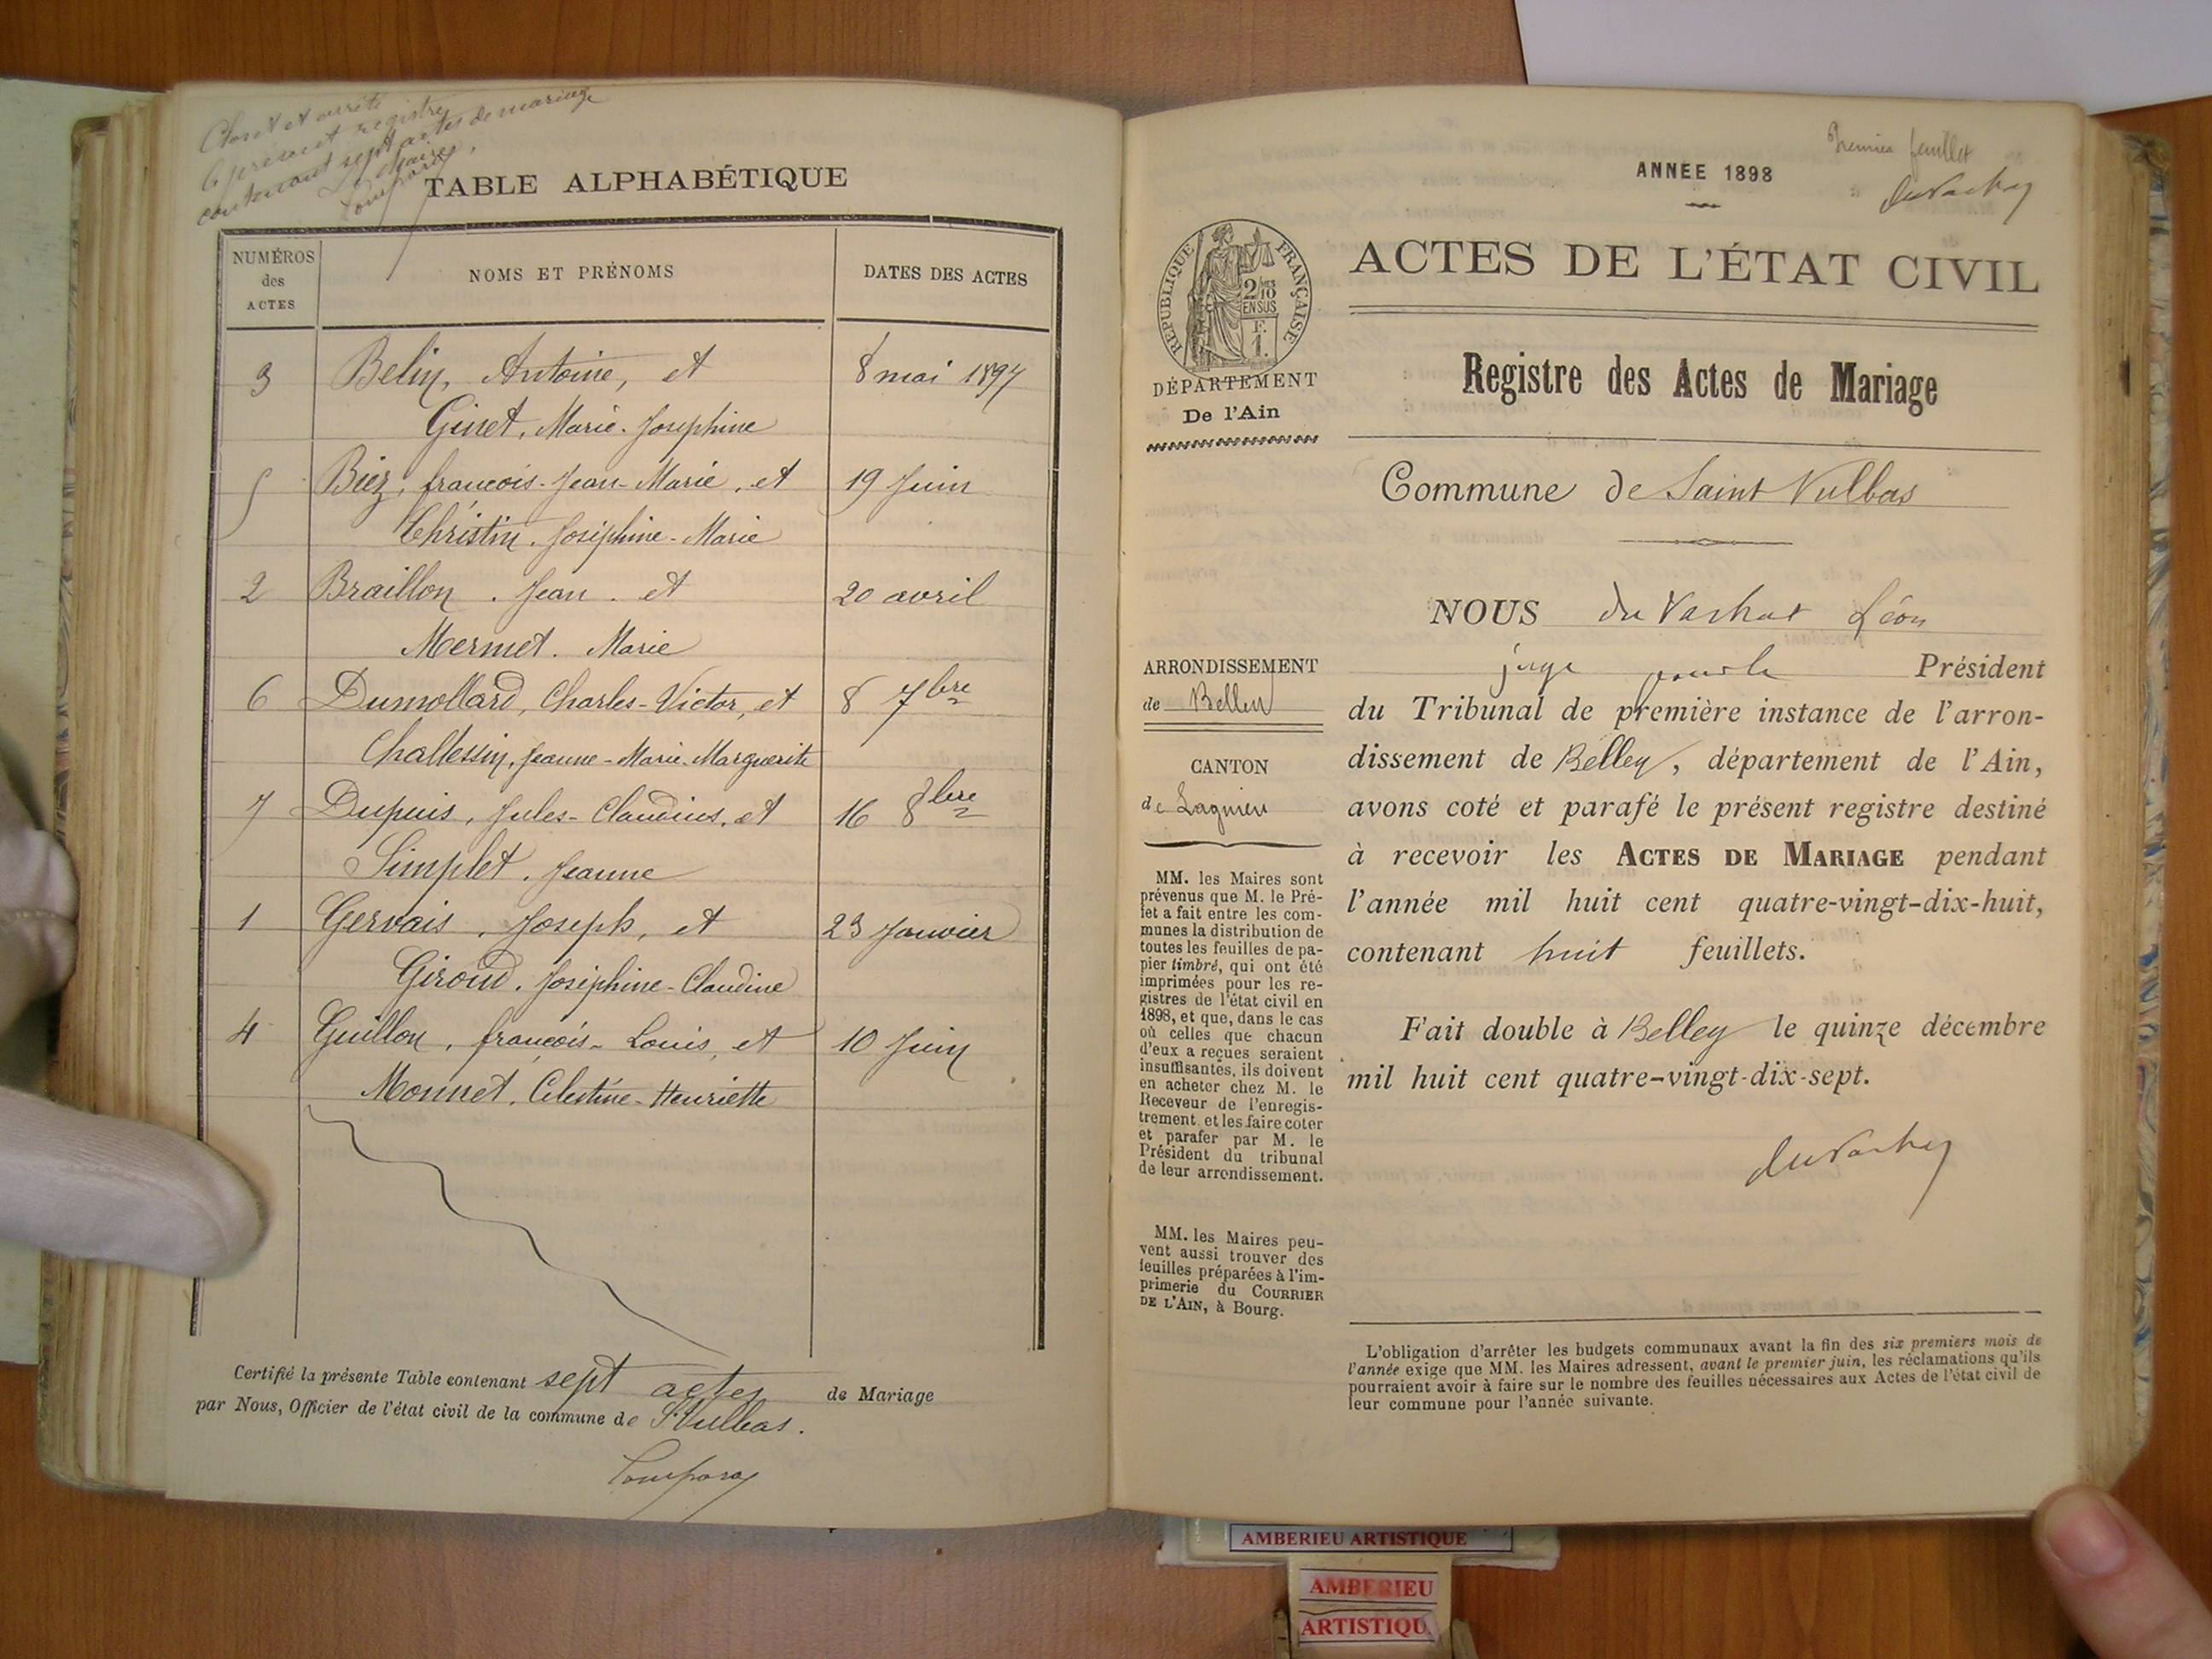 Clos et arrêté
le présent registre
contenant sept actes de mariage
Le Maire,
TABLE ALPHABÉTIQUE
NUMÉROS des ACTES
NOMS ET PRÉNOMS
DATES DES ACTES
3 Belin, Antoine, et 8 mai 1897
Ginet, Marie-Josephine
5 Biez, françois-Jean-Marie, et 19 Juin
Christin, Joséphine-Marie
2 Braillon, Jean, et 20 avril
Mermet, Marie
6 Dumollard, Charles-Victor, et 8 7bre
Challessin, Jeanne-Marie-Marguerite
7 Dupuis, Jules-Claudius, et 16 8bre
Simplet, Jeanne
1 Gervais, Joseph, et 23 Janvier
Giroud, Joséphine-Claudine
4 Guillon, françois-Louis, et 10 Juin
Monnet, Célestine-Henriette
Certifié la présente Table contenant sept actes de Mariage
par Nous, Officier de l'état civil de la commune de St Vulbas.
Premier feuillet
ANNÉE 1898
RÉPUBLIQUE FRANÇAISE
2/10
EN SUS
F.
1.
ACTES DE L'ÉTAT CIVIL
DÉPARTEMENT
De l'Ain
Registre des Actes de Mariage
Commune de Saint Vulbas
NOUS du Vachat Léon
juge pour le Président
du Tribunal de première instance de l'arron-
dissement de Belley, département de l'Ain,
avons coté et parafé le présent registre destiné
à recevoir les ACTES DE MARIAGE pendant
l'année mil huit cent quatre-vingt-dix-huit,
contenant huit feuillets.
Fait double à Belley le quinze décembre
mil huit cent quatre-vingt-dix-sept.
du Vachat
ARRONDISSEMENT
de Belley
CANTON
de Lagnieu
MM. les Maires sont
prévenus que M. le Pré-
fet a fait entre les com-
munes la distribution de
toutes les feuilles de pa-
pier timbré, qui ont été
imprimées pour les re-
gistres de l'état civil en
1898, et que, dans le cas
où celles que chacun
d'eux a reçues seraient
insuffisantes, ils doivent
en acheter chez M. le
Receveur de l'enregis-
trement et les faire coter
et parafer par M. le
Président du tribunal
de leur arrondissement.
MM. les Maires peu-
vent aussi trouver des
feuilles préparées à l'im-
primerie du COURRIER
DE L'AIN, à Bourg.
L'obligation d'arrêter les budgets communaux avant la fin des six premiers mois de
l'année exige que MM. les Maires adressent, avant le premier juin, les réclamations qu'ils
pourraient avoir à faire sur le nombre des feuilles nécessaires aux Actes de l'état civil de
leur commune pour l'année suivante.
AMBERIEU ARTISTIQUE
AMBERIEU
ARTISTIQU